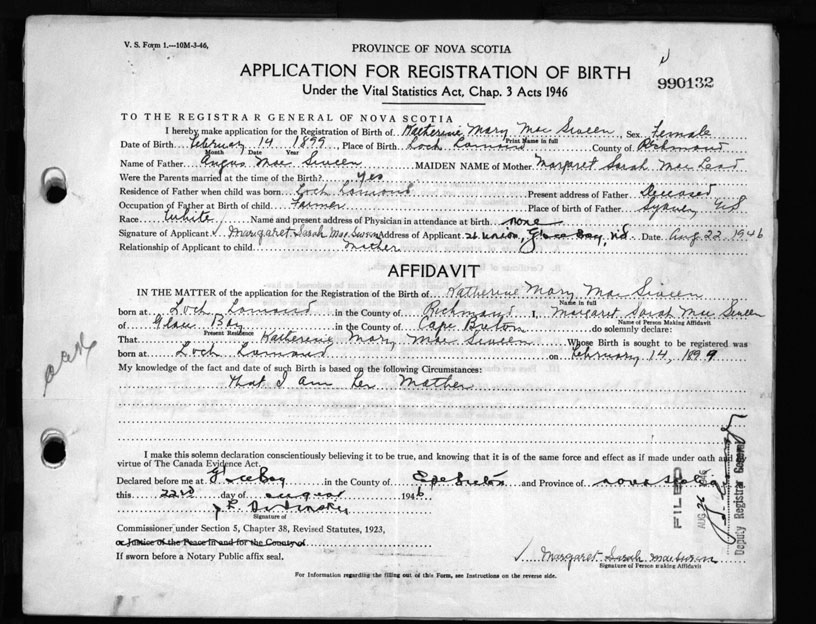 V. S. Form 1.—10M-3-46,
PROVINCE OF NOVA SCOTIA
APPLICATION FOR REGISTRATION OF BIRTH
990132
Under the Vital Statistics Act, Chap. 3 Acts 1946
TO THE REGISTRAR GENERAL OF NOVA SCOTIA
I hereby make application for the Registration of Birth of Katherine Mary Mac Sween, Sex Female
Print Name in full
Date of Birth February 14 1899, Place of Birth Loch Lomond County of Richmond
Month Date Year
Name of Father Angus Mac Sween MAIDEN NAME of Mother Margaret Sarah Mac Leod
Were the Parents married at the time of the Birth? Yes
Residence of Father when child was born Loch Lomond Present address of Father Deceased
Occupation of Father at Birth of child Farmer Place of birth of Father Sydney NS
Race White Name and present address of Physician in attendance at birth none
Signature of Applicant Margaret Sarah MacSween Address of Applicant 26 Union, Glace Bay, NS Date Aug 22 1946
Relationship of Applicant to child Mother
AFFIDAVIT
IN THE MATTER of the application for the Registration of the Birth of Katherine Mary Mac Sween
Name in full
born at Loch Lomond in the County of Richmond I, Margaret Sarah Mac Sween
Name of Person Making Affidavit
of Glace Bay in the County of Cape Breton do solemnly declare:
Present Residence
That Katherine Mary Mac Sween Whose Birth is sought to be registered was
born at Loch Lomond on February 14, 1899
My knowledge of the fact and date of such Birth is based on the following Circumstances:
That I am her Mother
I make this solemn declaration conscientiously believing it to be true, and knowing that it is of the same force and effect as if made under oath and by
virtue of The Canada Evidence Act.
Declared before me at Glace Bay in the County of Cape Breton and Province of Nova Scotia
this 22nd day of August 1946
Signature of
Commissioner under Section 5, Chapter 38, Revised Statutes, 1923,
or Justice of the Peace in and for the County of
If sworn before a Notary Public affix seal.
Margaret Sarah MacSween
Signature of Person Making Affidavit
For Information regarding the filling out of this Form, see Instructions on the reverse side.
FILED
AUG 26 1946
Deputy Registrar General